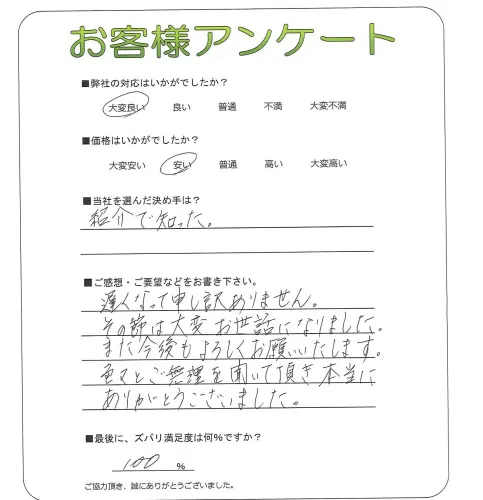 お客様アンケート
■弊社の対応はいかがでしたか？
大変良い 良い 普通 不満 大変不満
■価格はいかがでしたか？
大変安い 安い 普通 高い 大変高い
■当社を選んだ決め手は？
紹介で知った。
■ご感想・ご要望などをお書き下さい。
遅くなって申し訳ありません。
その節は大変お世話になりました。
また今後もよろしくお願いいたします。
色々とご無理を聞いて頂き本当に
ありがとうございました。
■最後に、ズバリ満足度は何%ですか？
100 %
ご協力頂き、誠にありがとうございました。